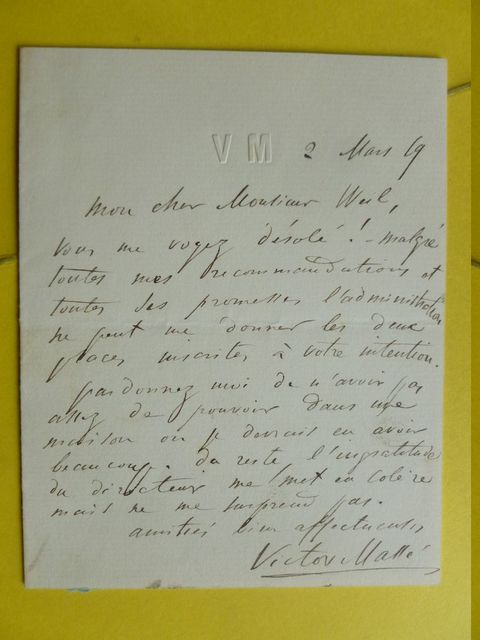 VM 2 Mars 69
Mon cher Monsieur Weil,
Vous me voyez désolé ! – malgré
toutes mes recommandations et
toutes ses promesses l'administration
ne peut me donner les deux
places inscrites à votre intention.
pardonnez moi de n'avoir pas
assez de pouvoir dans une
maison où je devrais en avoir
beaucoup. du reste l'ingratitude
du directeur me met en colère
mais ne me surprend pas.
amitiés bien affectueuses
Victor Massé